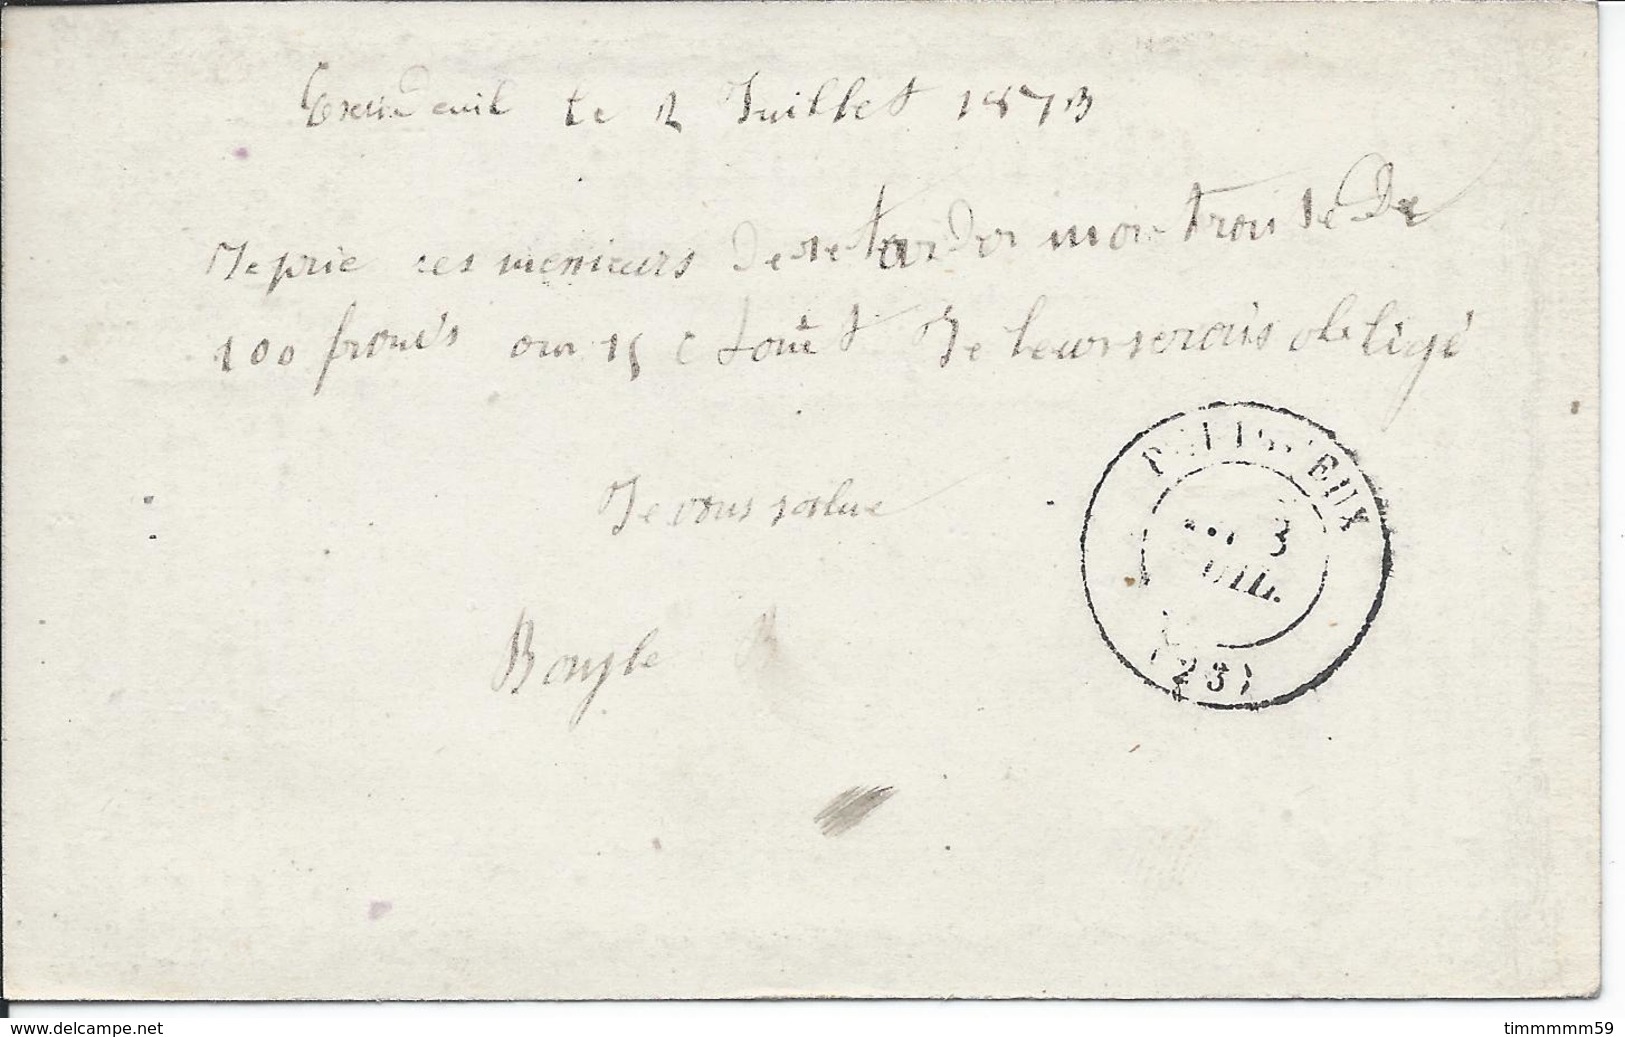 le 2 Juillet 1873
Je prie ces messieurs de retarder mon traite de
100 francs au 15 c tout Je leur serais obligé
Je vous salue
Bougle B
3
JUIL.
(23)
www.delcampe.net
timmmmm59